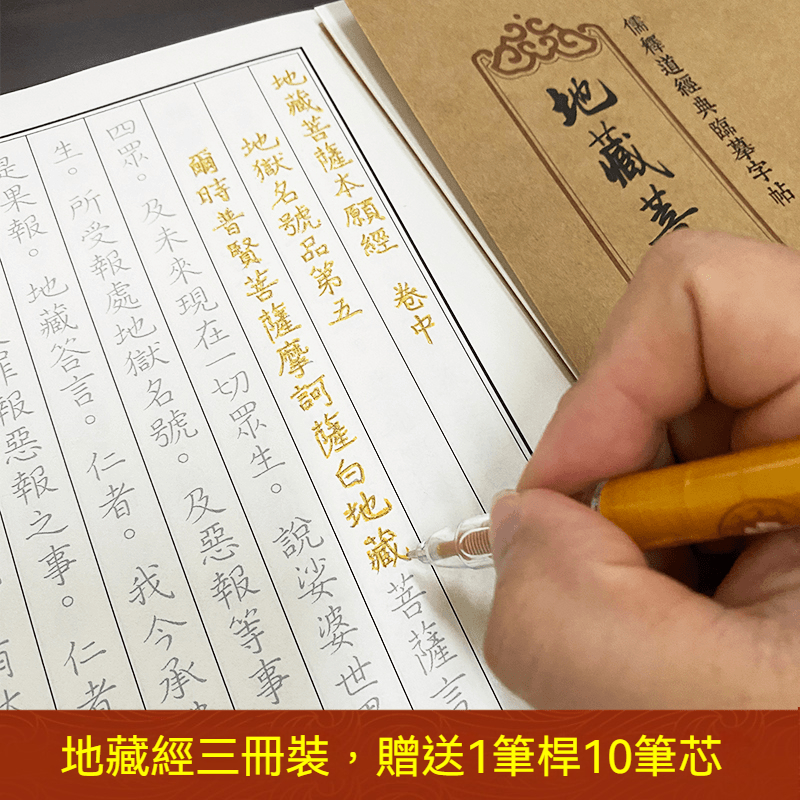 儒釋道經典臨摹字帖
地藏菩
地藏菩薩本願經 卷中
地獄名號品第五
爾時普賢菩薩摩訶薩白地藏菩薩言
四眾。及未來現在一切眾生。說娑婆世
生。所受報處地獄名號。及惡報等事
是果報。地藏答言。仁者。我今承
報惡報之事。仁者
地藏經三冊裝，贈送1筆桿10筆芯